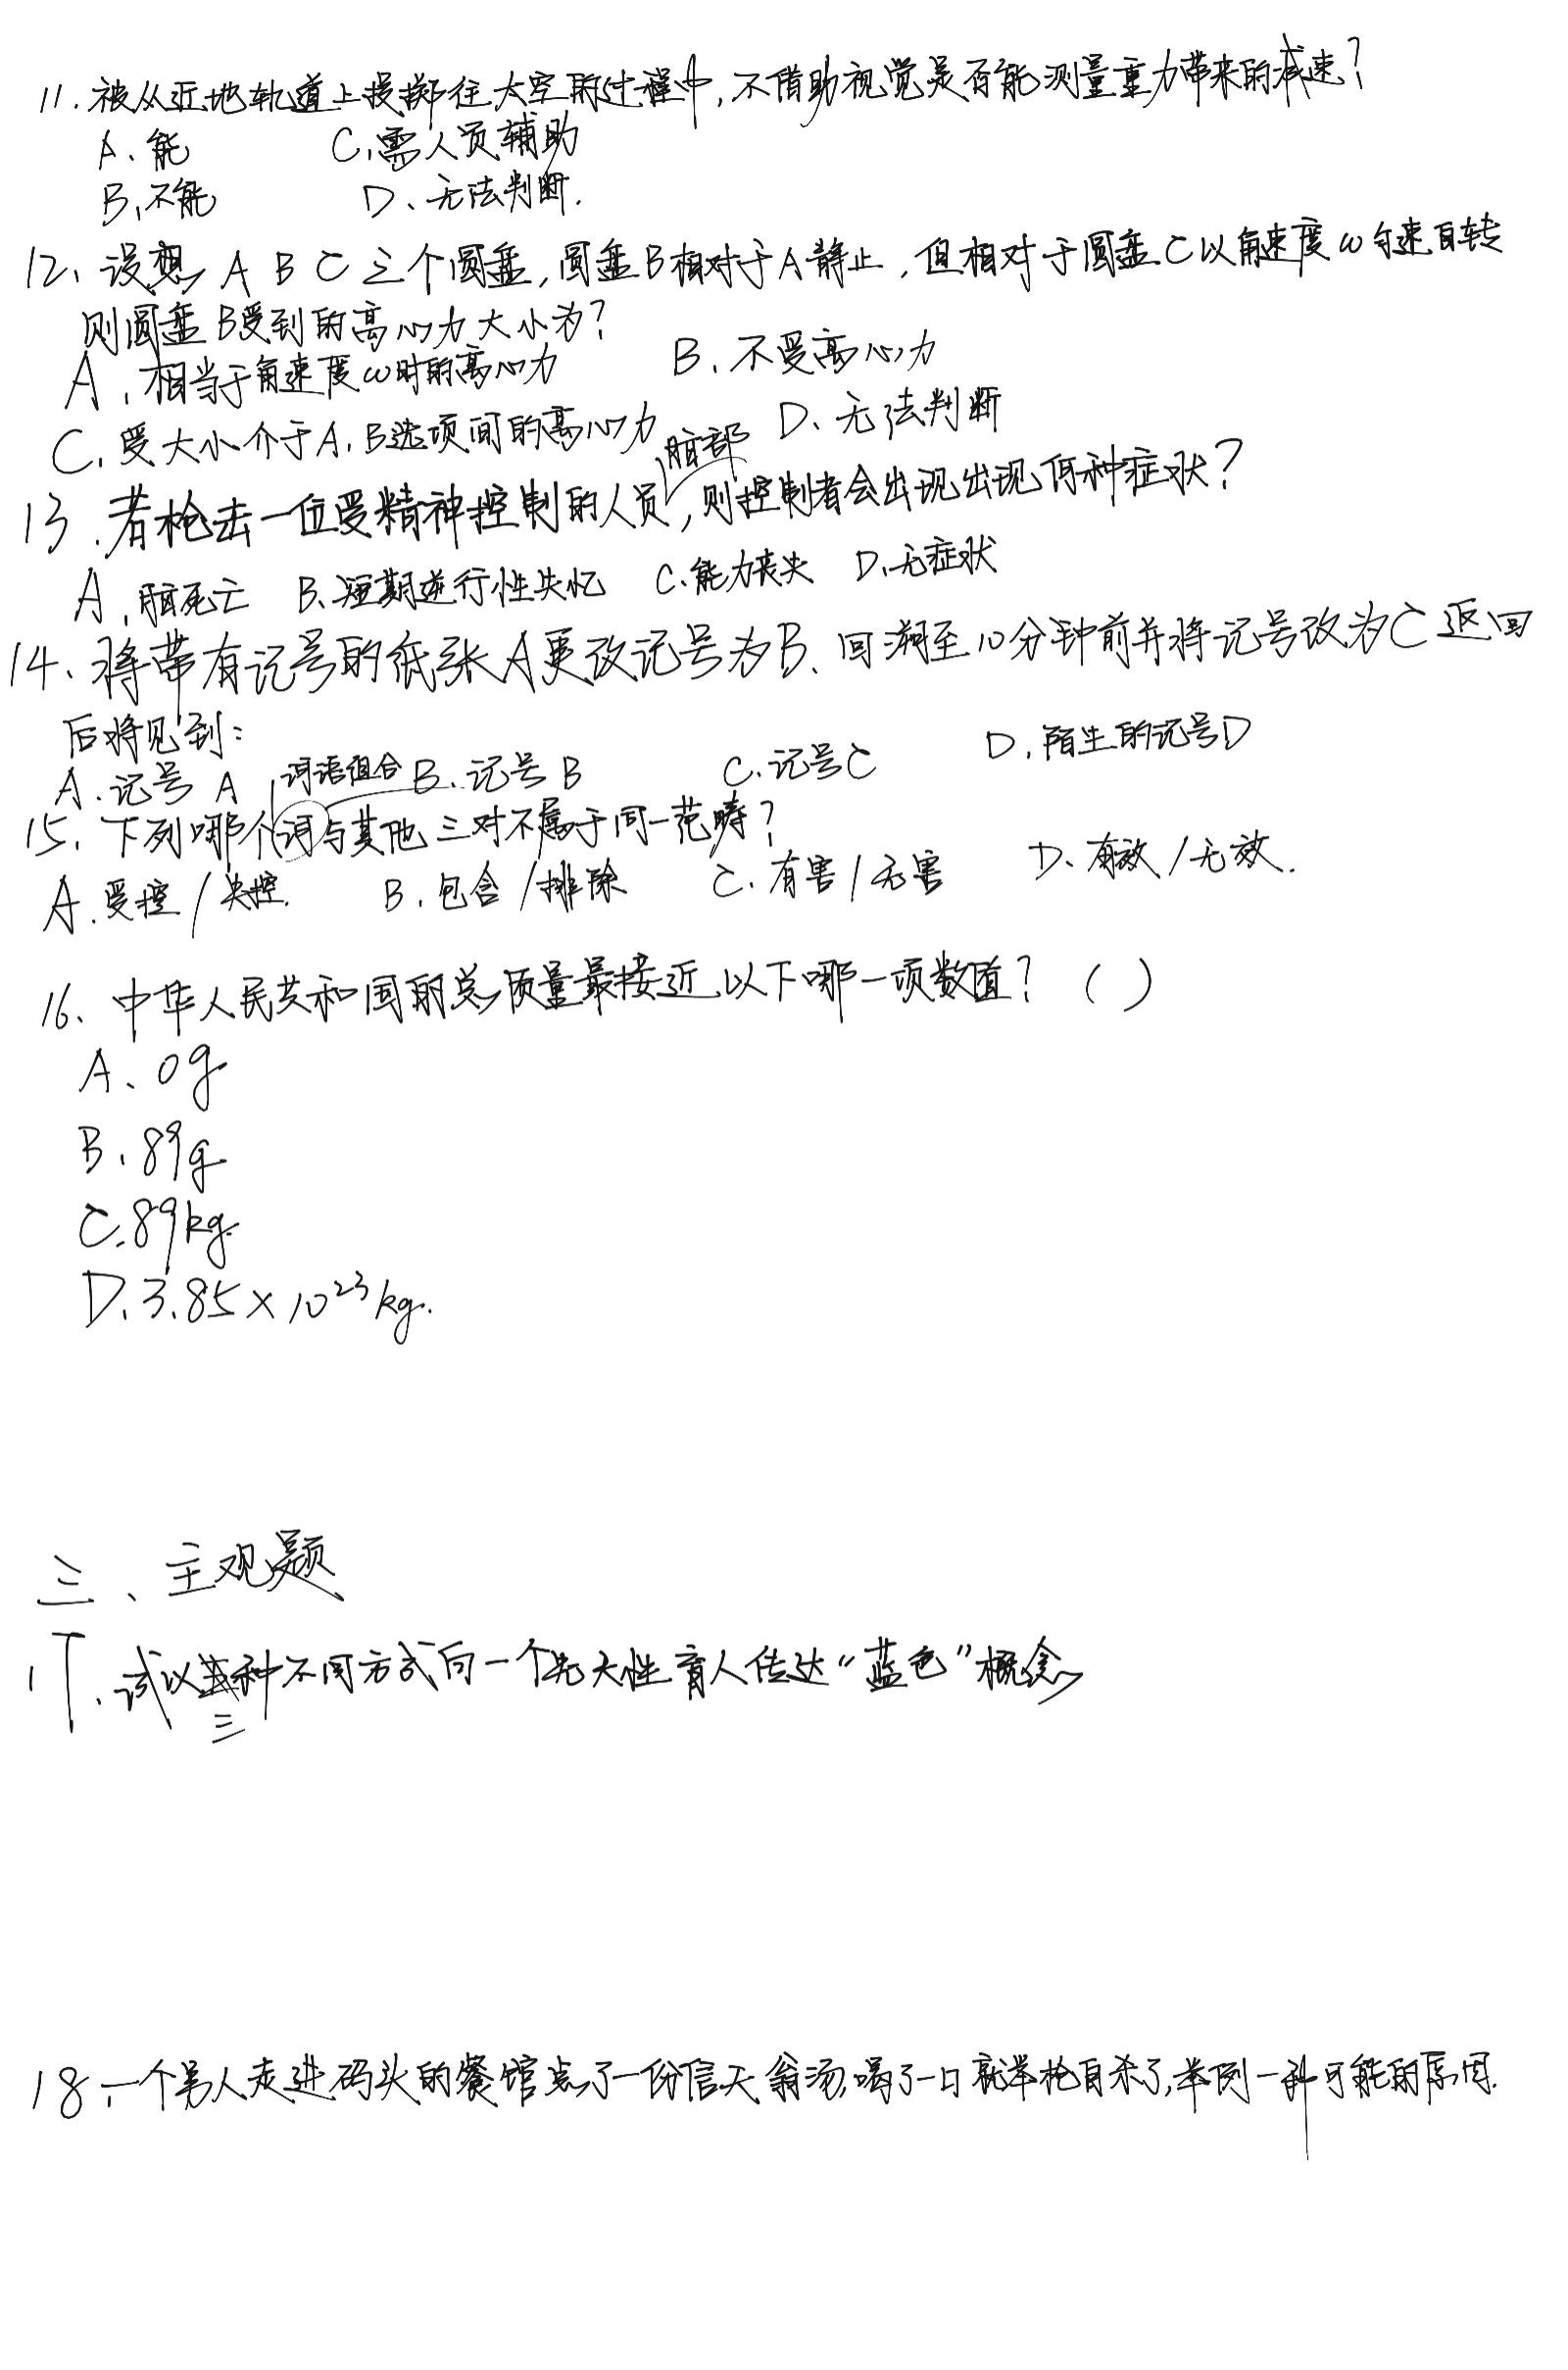 11.被从近地轨道上投掷往太空的过程中,不借助视觉是否能测量重力带来的减速?
A、能 C、需人员辅助
B、不能 D、无法判断.
12、设想 A B C 三个圆盘,圆盘B相对于A静止,但相对于圆盘C以角速度ω匀速自转
则圆盘B受到的离心力大小为?
A、相当于角速度ω时的离心力 B、不受离心力
C、受大小介于A、B选项间的离心力 D、无法判断
脑部
13.若枪击一位受精神控制的人员,则控制者会出现出现何种症状?
A、脑死亡 B、短期逆行性失忆 C、能力丧失 D、无症状
14、将带有记号的纸张A更改记号为B、回溯至10分钟前并将记号改为C返回
后将见到:
A、记号 A B、记号 B C、记号C D、陌生的记号D
词语组合
15、下列哪个词与其他三对不属于同一范畴?
A.受控/失控. B.包含/排除 C.有害/无害 D、有效/无效.
16、中华人民共和国的总质量最接近以下哪一项数值? ( )
A、0g
B、89g
C.89kg.
D、3.85×10²³kg.
三、主观题
17、试以三种不同方式向一个先天性盲人传达“蓝色”概念
18、一个男人走进码头的餐馆点了一份信天翁汤,喝了一口就举枪自杀了,举例一种可能的原因.